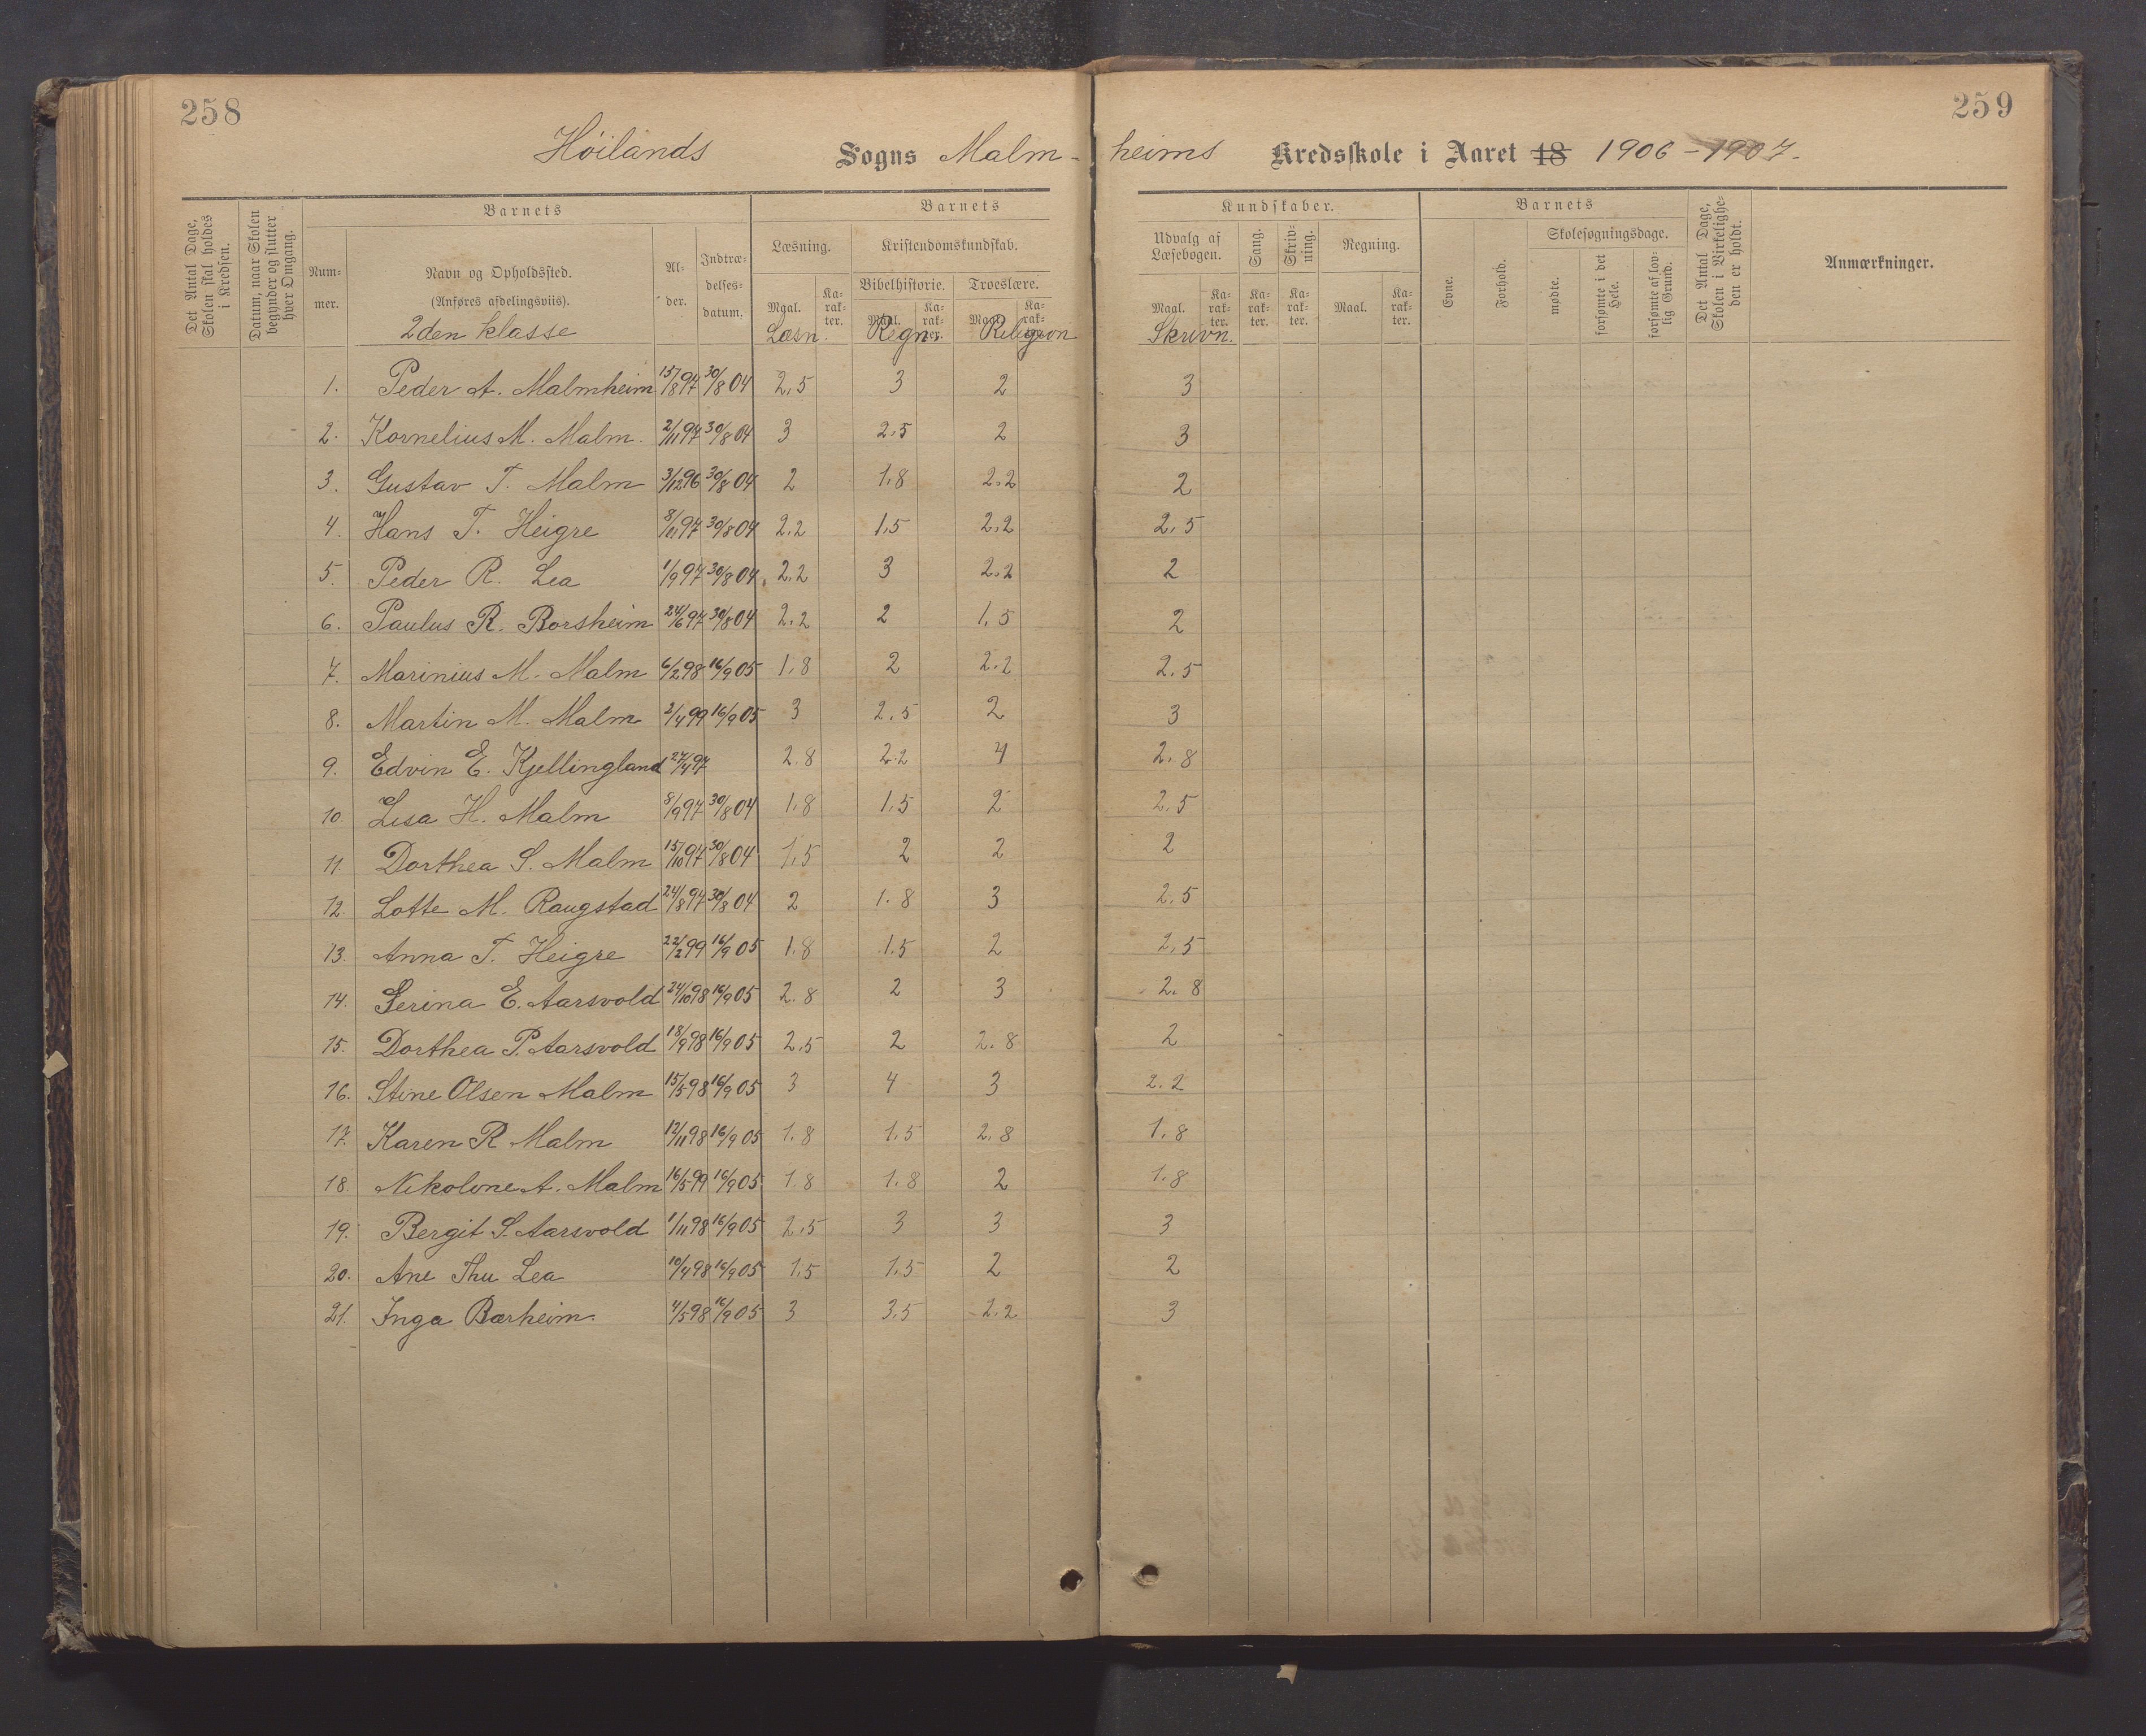 258
259
Höilands Sogns Malm-heims Kredsskole i Aaret 18 1906-1907.
Det Antal Dage, Skolen skal holdes i Kredsen.
Datum, naar Skolen begynder og slutter hver Omgang.
Barnets
Num-mer.
Navn og Opholdssted.
(Anføres afdelingsviis).
2den klasse
Al-der.
Indtræ-delses-datum.
Barnets
Læsning.
Maal.
Ka-rak-ter.
Læsn.
Kristendomskundskab.
Bibelhistorie.
Maal.
Ka-rak-ter.
Regn.
Troeslære.
Maal.
Ka-rak-ter.
Religion
Kundskaber.
Udvalg af Læsebogen.
Maal.
Ka-rak-ter.
Skrivn.
Sang.
Ka-rak-ter.
Skriv-ning.
Ka-rak-ter.
Regning.
Maal.
Ka-rak-ter.
Barnets
Evne.
Forhold.
Skolesøgningsdage.
mødte.
forsømte i det Hele.
forsømte af lov-lig Grund.
Det Antal Dage, Skolen i Virkelighe-den er holdt.
Anmærkninger.
1. Peder A. Malmheim 15/8 97 30/8 04 2,5 3 2 3
2. Kornelius M. Malm. 2/11 97 30/8 04 3 2.5 2 3
3. Gustav T. Malm 3/12 96 30/8 04 2 1.8 2.2 2
4. Hans T. Heigre 8/10 97 30/8 04 2.2 1,5 2,2 2,5
5. Peder R. Lea 1/9 97 30/8 04 2.2 3 2.2 2
6. Paulus R. Borsheim 24/6 97 30/8 04 2.2 2 1,5 2
7. Marinius M. Malm 6/2 98 16/9 05 1,8 2 2.2 2.5
8. Martin M. Malm 2/4 99 16/9 05 3 2.5 2 3
9. Edvin E. Kjellingland 27/4 97 2.8 2.2 4 2.8
10. Lisa H. Malm 8/9 97 30/8 04 1,8 1.5 2 2.5
11. Dorthea S. Malm 15/10 97 30/8 04 1,5 2 2 2
12. Lotte M. Raugstad 24/8 97 30/8 04 2 1.8 3 2.5
13. Anna T. Heigre 22/2 99 16/9 05 1.8 1.5 2 2,5
14. Serina E. Aarsvold 24/10 98 16/9 05 2.8 2 3 2.8
15. Dorthea P. Aarsvold 18/9 98 16/9 05 2,5 2 2.8 2
16. Stine Olsen Malm 15/5 98 16/9 05 3 4 3 2.2
17. Karen R Malm 12/11 98 16/9 05 1.8 1.5 2.8 1.8
18. Nikoline A. Malm 16/5 99 16/9 05 1.8 1.8 2 1.8
19. Bergit S. Aarsvold 1/11 98 16/9 05 2,5 3 3 3
20. Ane Thu Lea 10/4 98 16/9 05 1,5 1.5 2 2
21. Inga Barheim. 4/5 98 16/9 05 3 3.5 2.2 3